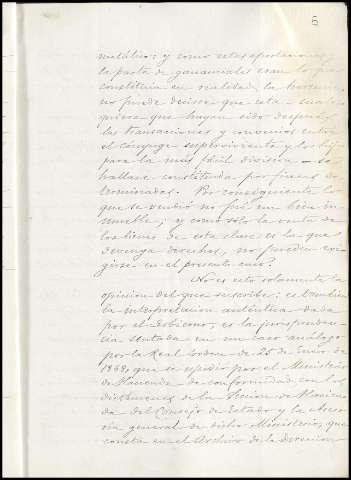 6
metálico: y como estas aportaciones y
la parte de gananciales eran lo que
constituia en realidad la herencia,
no puede decirse que esta - cuales
quiera que hayan sido después
las transacciones y convenios entre
el cónyuge superviviente y los hijos
para la mas fácil division - se
hallase constituida por fincas de
terminadas. Por consiguiente lo
que se vendió no fué un bien in
mueble; y como sólo la venta de
los bienes de esta clase es la que
devenga derechos, no pueden exi
girse en el presente caso.
No es esto solamente la
opinion del que suscribe: es tambien
la interpretacion auténtica dada
por el Gobierno; es la jurispruden
cia sentada en un caso análogo
por la Real orden de 25 de Enero de
1868, que se expidió por el Ministerio
de Hacienda de conformidad con los
dictámenes de la Seccion de Hacien
da del Consejo de Estado y la Aseso
ria general de dicho Ministerio, que
consta en el Archivo de la Direccion